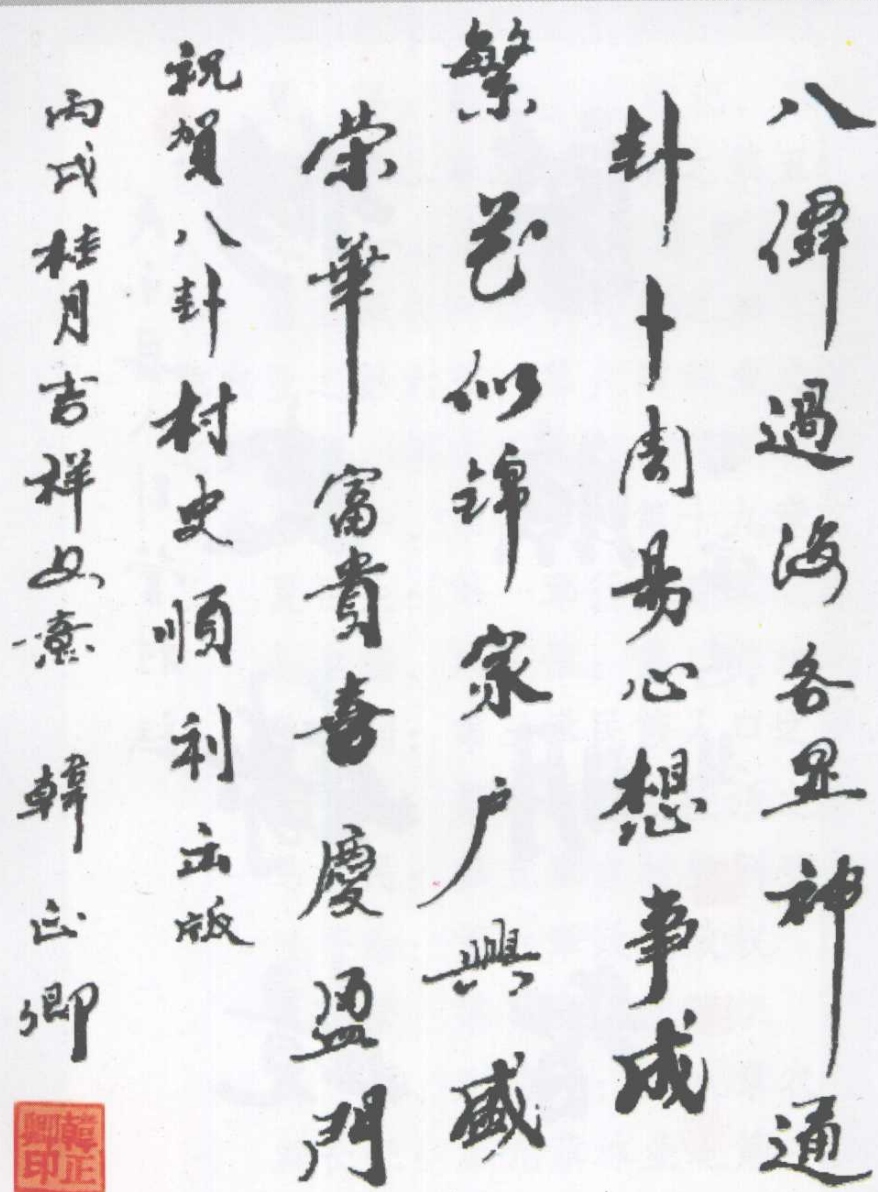 八僊過海各显神通
卦卜周易心想事成
繁花似錦家户興盛
荣華富貴喜慶盈門
祝賀八卦村史順利出版
丙戌桂月吉祥如意 韓正卿
韓正卿印